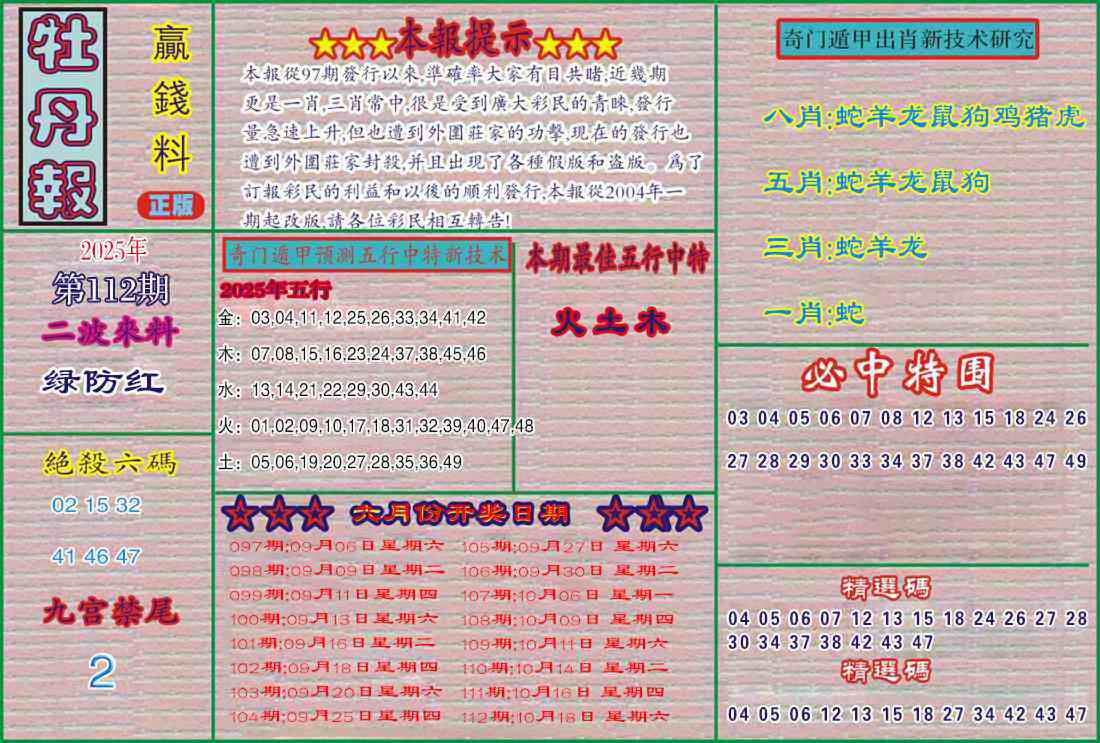 牡丹報
赢錢料
正版
★★★本報提示★★★
本報從97期發行以來,準確率大家有目共睹,近幾期
更是一肖,三肖常中,很是受到廣大彩民的青睞,發行
量急速上升,但也遭到外圍莊家的功擊,現在的發行也
遭到外圍莊家封殺,并且出現了各種假版和盗版。爲了
訂報彩民的利益和以後的順利發行,本報從2004年一
期起改版,請各位彩民相互轉告!
奇门遁甲出肖新技术研究
八肖:蛇羊龙鼠狗鸡猪虎
五肖:蛇羊龙鼠狗
三肖:蛇羊龙
一肖:蛇
2025年
第112期
二波來料
绿防红
奇门遁甲预测五行中特新技术
2025年五行
金：03,04,11,12,25,26,33,34,41,42
木：07,08,15,16,23,24,37,38,45,46
水：13,14,21,22,29,30,43,44
火：01,02,09,10,17,18,31,32,39,40,47,48
土：05,06,19,20,27,28,35,36,49
本期最佳五行中特
火土木
必中特围
03 04 05 06 07 08 12 13 15 18 24 26
27 28 29 30 33 34 37 38 42 43 47 49
絕殺六碼
02 15 32
41 46 47
九宫禁尾
2
★★★ 六月份开奖日期 ★★★
097期:09月06日星期六 105期:09月27日 星期六
098期:09月09日星期二 106期:09月30日 星期二
099期:09月11日星期四 107期:10月06日 星期一
100期:09月13日星期六 108期:10月09日 星期四
101期:09月16日星期二 109期:10月11日 星期六
102期:09月18日星期四 110期:10月14日 星期二
103期:09月20日星期六 111期:10月16日 星期四
104期:09月25日星期四 112期:10月18日 星期六
精選碼
04 05 06 07 12 13 15 18 24 26 27 28
30 34 37 38 42 43 47
精選碼
04 05 06 12 13 15 18 27 34 42 43 47